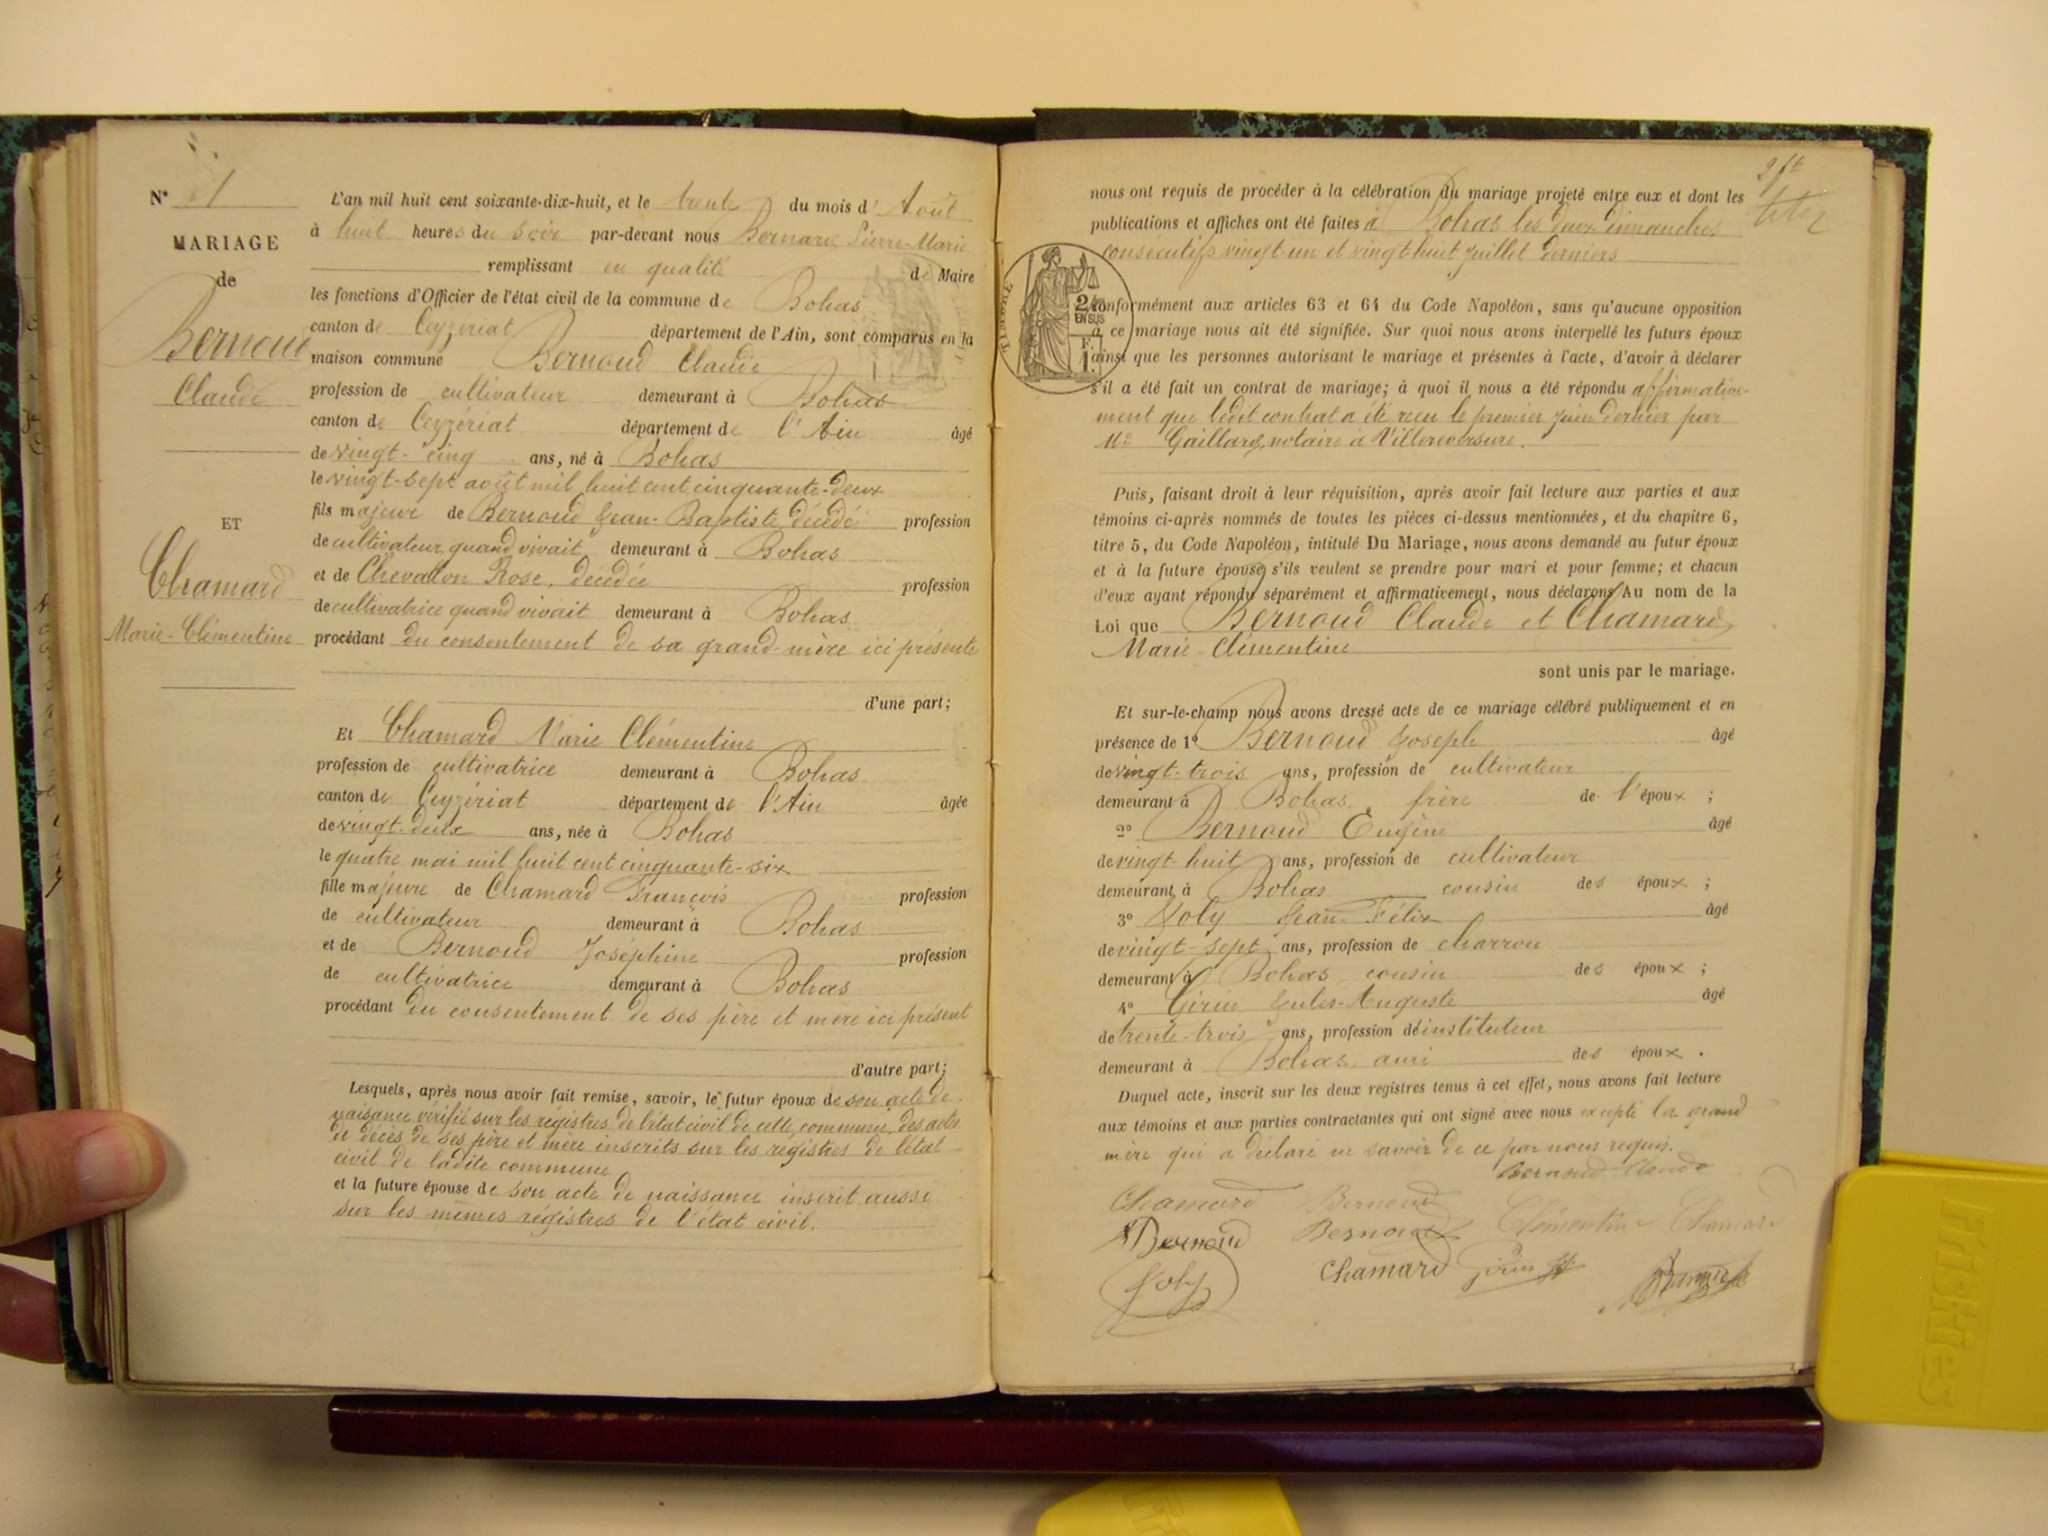 N° 1
MARIAGE
de
Bernoud
Claude
ET
Chamard
Marie-Clémentine
L'an mil huit cent soixante-dix-huit, et le trente du mois d' Août
à huit heures du soir par-devant nous Bernard Pierre-Marie
remplissant en qualité de Maire
les fonctions d'Officier de l'état civil de la commune de Bohas
canton de Ceyzériat département de l'Ain, sont comparus en la
maison commune Bernoud Claude
profession de cultivateur demeurant à Bohas
canton de Ceyzériat département de l'Ain âgé
de vingt-cinq ans, né à Bohas
le vingt-sept août mil huit cent cinquante-deux
fils majeur de Bernoud Jean-Baptiste, décédé profession
de cultivateur quand vivait demeurant à Bohas
et de Chevalon Rose, décédée profession
de cultivatrice quand vivait demeurant à Bohas
procédant du consentement de sa grand-mère ici présente
d'une part;
Et Chamard Marie Clémentine
profession de cultivatrice demeurant à Bohas
canton de Ceyzériat département de l'Ain âgée
de vingt-deux ans, née à Bohas
le quatre mai mil huit cent cinquante-six
fille majeure de Chamard François profession
de cultivateur demeurant à Bohas
et de Bernoud Joséphine profession
de cultivatrice demeurant à Bohas
procédant du consentement de ses père et mère ici présent
d'autre part;
Lesquels, après nous avoir fait remise, savoir, le futur époux de son acte de
naisance vérifié sur les régistres de l'état civil de cette commune, des actes
de décès de ses père et mère inscrits sur les régistres de l'état
civil de ladite commune
et la future épouse de son acte de naissance inscrit aussi
sur les mêmes régistres de l'état civil.
nous ont requis de procéder à la célébration du mariage projeté entre eux et dont les
publications et affiches ont été faites à Bohas les deux dimanches
consécutifs vingt-un et vingt-huit juillet derniers
TIMBRE
2/10
EN SUS
F.
1.
conformément aux articles 63 et 64 du Code Napoléon, sans qu'aucune opposition
à ce mariage nous ait été signifiée. Sur quoi nous avons interpellé les futurs époux
ainsi que les personnes autorisant le mariage et présentes à l'acte, d'avoir à déclarer
s'il a été fait un contrat de mariage; à quoi il nous a été répondu affirmative
ment que ledit contrat a été reçu le premier juin dernier par
Me Gaillard, notaire à Villereversure.
Puis, faisant droit à leur réquisition, après avoir fait lecture aux parties et aux
témoins ci-après nommés de toutes les pièces ci-dessus mentionnées, et du chapitre 6,
titre 5, du Code Napoléon, intitulé Du Mariage, nous avons demandé au futur époux
et à la future épouse s'ils veulent se prendre pour mari et pour femme; et chacun
d'eux ayant répondu séparément et affirmativement, nous déclarons Au nom de la
Loi que Bernoud Claude et Chamard
Marie-Clémentine
sont unis par le mariage.
Et sur-le-champ nous avons dressé acte de ce mariage célébré publiquement et en
présence de 1° Bernoud Joseph âgé
de vingt-trois ans, profession de cultivateur
demeurant à Bohas, frère de l'époux ;
2° Bernoud Eugène âgé
de vingt-huit ans, profession de cultivateur
demeurant à Bohas cousin des époux ;
3° Joly Jean-Félix âgé
de vingt-sept ans, profession de charron
demeurant à Bohas cousin des époux ;
4° Girin Jules-Auguste âgé
de trente-trois ans, profession de instituteur
demeurant à Bohas ami des époux .
Duquel acte, inscrit sur les deux registres tenus à cet effet, nous avons fait lecture
aux témoins et aux parties contractantes qui ont signé avec nous excepté la grand
mère qui a déclaré ne savoir de ce par nous requis.
Bernoud Claude
Chamard Bernoud Clémentine Chamard
Bernoud Bernoud
Joly Chamard Girin
FACHIES